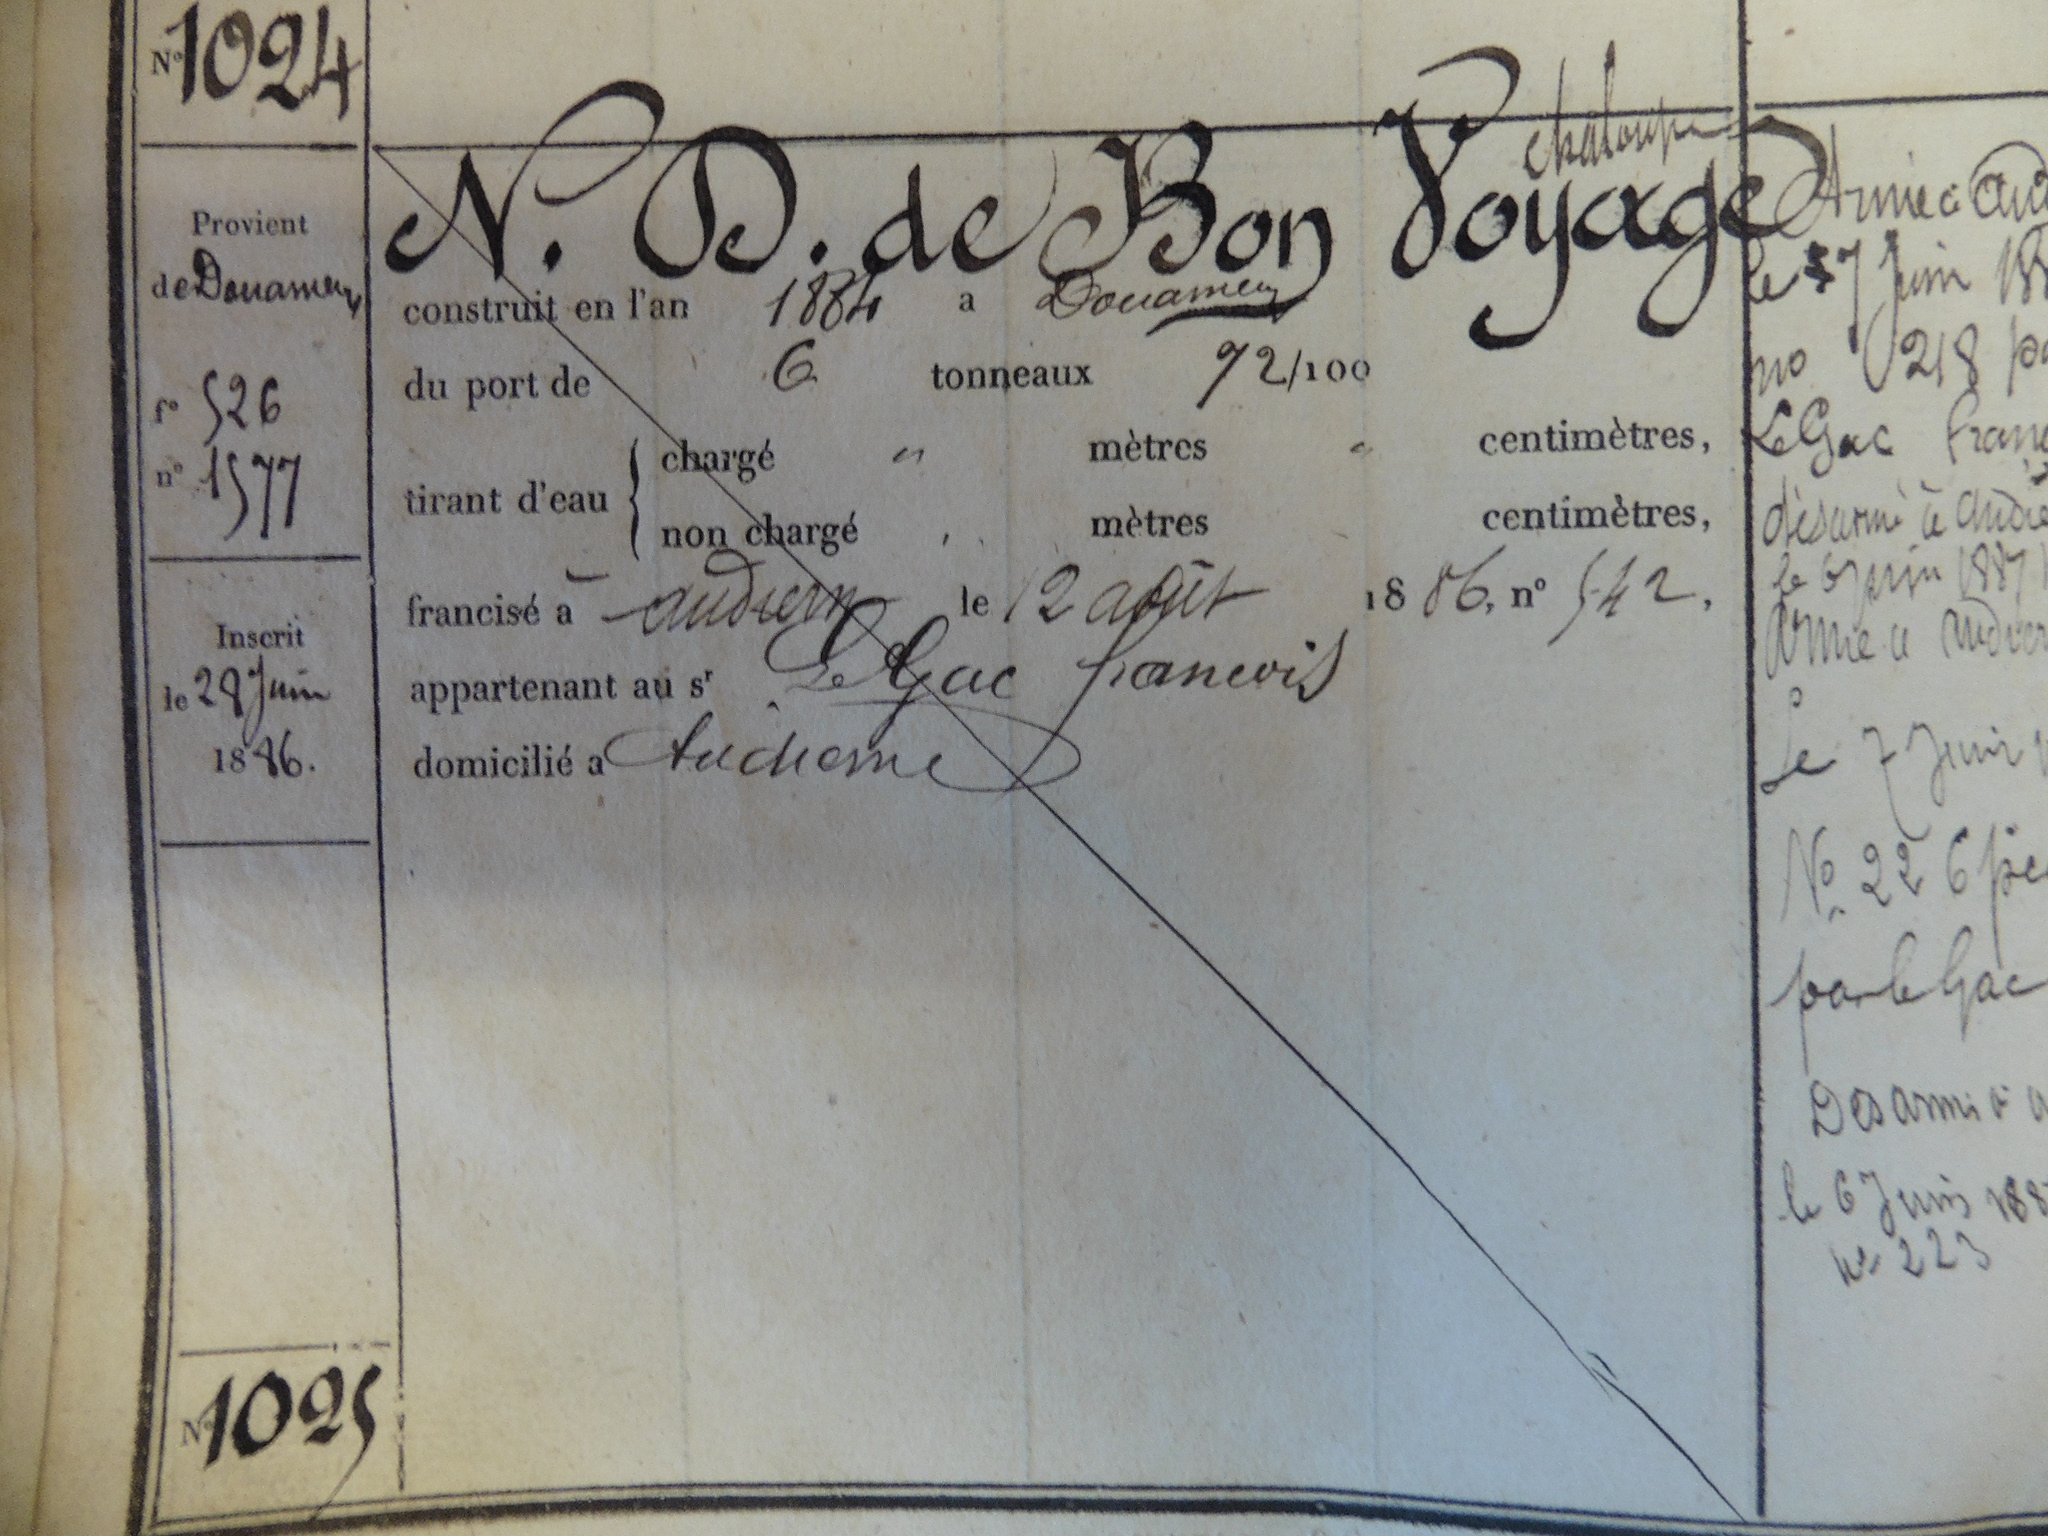 No 1024
Provient
de Douarnenez
fo 526
no 1577
Inscrit
le 28 Juin
1886.
No 1025
chaloupe
N. D. de Bon Voyage
construit en l'an 1884 a Douarnenez
du port de 6 tonneaux 72/100
tirant d'eau { chargé " mètres " centimètres,
non chargé mètres centimètres,
francisé à audierne le 12 août 1886, no 542,
appartenant au sr Le Gac francois
domicilié a Audierne
Armé à
le 7 Juin 188
no 218
Le Gac
désarmé à
le 6 juin 1887
Armé à
Le 7 Juin
No 226
par le Gac
Desarmé à
le 6 Juin 188
No 223